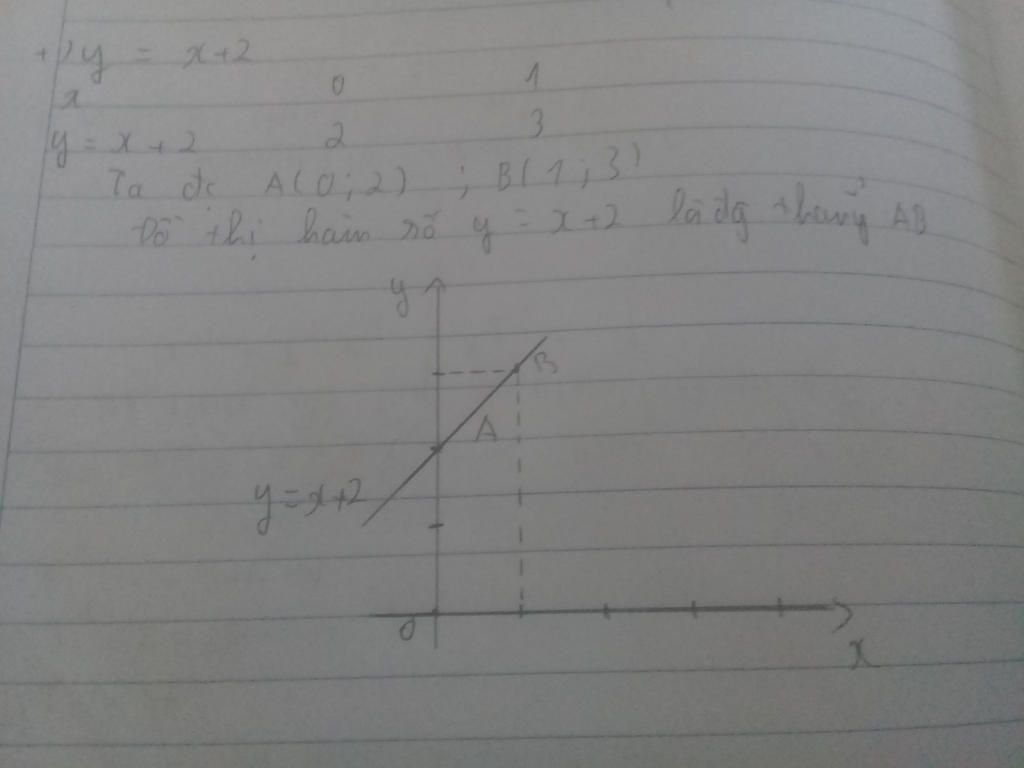 +) y = x+2
x 0 1
y = x + 2 2 3
Ta đc A(0 ; 2) ; B(1 ; 3)
Đồ thị hàm số y = x+2 là đg thẳng AB
y
B
A
y = x+2
O
x